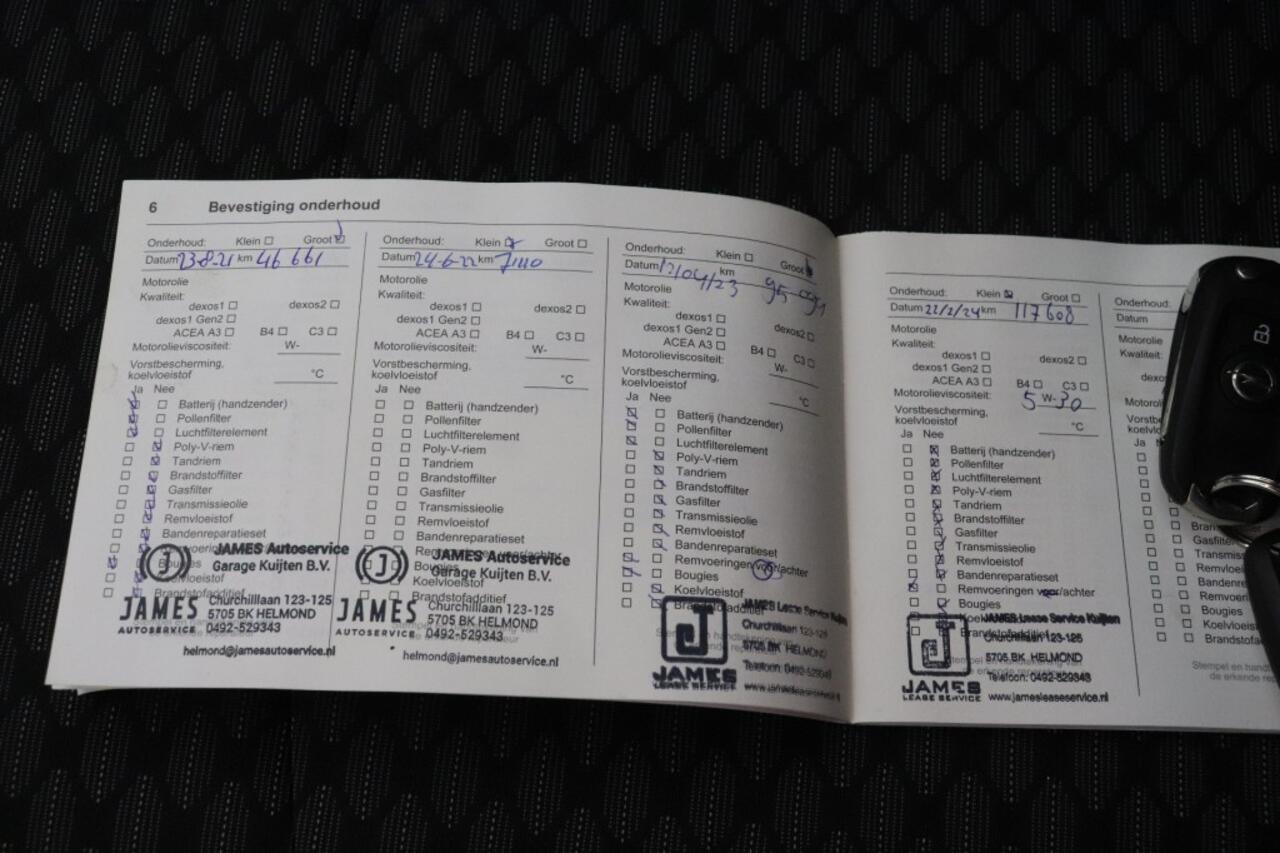 6 Bevestiging onderhoud
Onderhoud: Klein Groot
Datum 23-8-21 km 46 661
Motorolie
Kwaliteit:
dexos1 dexos2
dexos1 Gen2
ACEA A3 B4 C3
Motorolieviscositeit: W-
Vorstbescherming,
koelvloeistof °C
Ja Nee
Batterij (handzender)
Pollenfilter
Luchtfilterelement
Poly-V-riem
Tandriem
Brandstoffilter
Gasfilter
Transmissieolie
Remvloeistof
Bandenreparatieset
Bougies
Koelvloeistof
Brandstofadditief
JAMES Autoservice
Garage Kuijten B.V.
JAMES
AUTOSERVICE
Churchilllaan 123-125
5705 BK HELMOND
0492-529343
helmond@jamesautoservice.nl
Onderhoud: Klein Groot
Datum 24-6-22 km
Motorolie
Kwaliteit:
dexos1 dexos2
dexos1 Gen2
ACEA A3 B4 C3
Motorolieviscositeit: W-
Vorstbescherming,
koelvloeistof °C
Ja Nee
Batterij (handzender)
Pollenfilter
Luchtfilterelement
Poly-V-riem
Tandriem
Brandstoffilter
Gasfilter
Transmissieolie
Remvloeistof
Bandenreparatieset
Remvoeringen voor/achter
Bougies
Koelvloeistof
Brandstofadditief
JAMES Autoservice
Garage Kuijten B.V.
JAMES
AUTOSERVICE
Churchilllaan 123-125
5705 BK HELMOND
0492-529343
helmond@jamesautoservice.nl
Onderhoud: Klein Groot
Datum 12/04/23 km
Motorolie
Kwaliteit:
dexos1 dexos2
dexos1 Gen2
ACEA A3 B4 C3
Motorolieviscositeit: W-
Vorstbescherming,
koelvloeistof °C
Ja Nee
Batterij (handzender)
Pollenfilter
Luchtfilterelement
Poly-V-riem
Tandriem
Brandstoffilter
Gasfilter
Transmissieolie
Remvloeistof
Bandenreparatieset
Remvoeringen voor/achter
Bougies
Koelvloeistof
Brandstofadditief
JAMES Lease Service Kuijten
Churchilllaan 123-125
5705 BK HELMOND
Telefoon: 0492-529343
www.jamesleaseservice.nl
JAMES
LEASE SERVICE
Onderhoud: Klein Groot
Datum 22/2/24 km 117608
Motorolie
Kwaliteit:
dexos1 dexos2
dexos1 Gen2
ACEA A3 B4 C3
Motorolieviscositeit: 5 W-30
Vorstbescherming,
koelvloeistof °C
Ja Nee
Batterij (handzender)
Pollenfilter
Luchtfilterelement
Poly-V-riem
Tandriem
Brandstoffilter
Gasfilter
Transmissieolie
Remvloeistof
Bandenreparatieset
Remvoeringen voor/achter
Bougies
Brandstofadditief
JAMES Lease Service Kuijten
Churchilllaan 123-125
5705 BK HELMOND
Telefoon: 0492-529343
www.jamesleaseservice.nl
JAMES
LEASE SERVICE
Onderhoud:
Datum
Motorolie
Kwaliteit:
Ja
Gasfilter
Bougies
Stempel en hand
de erkende rep